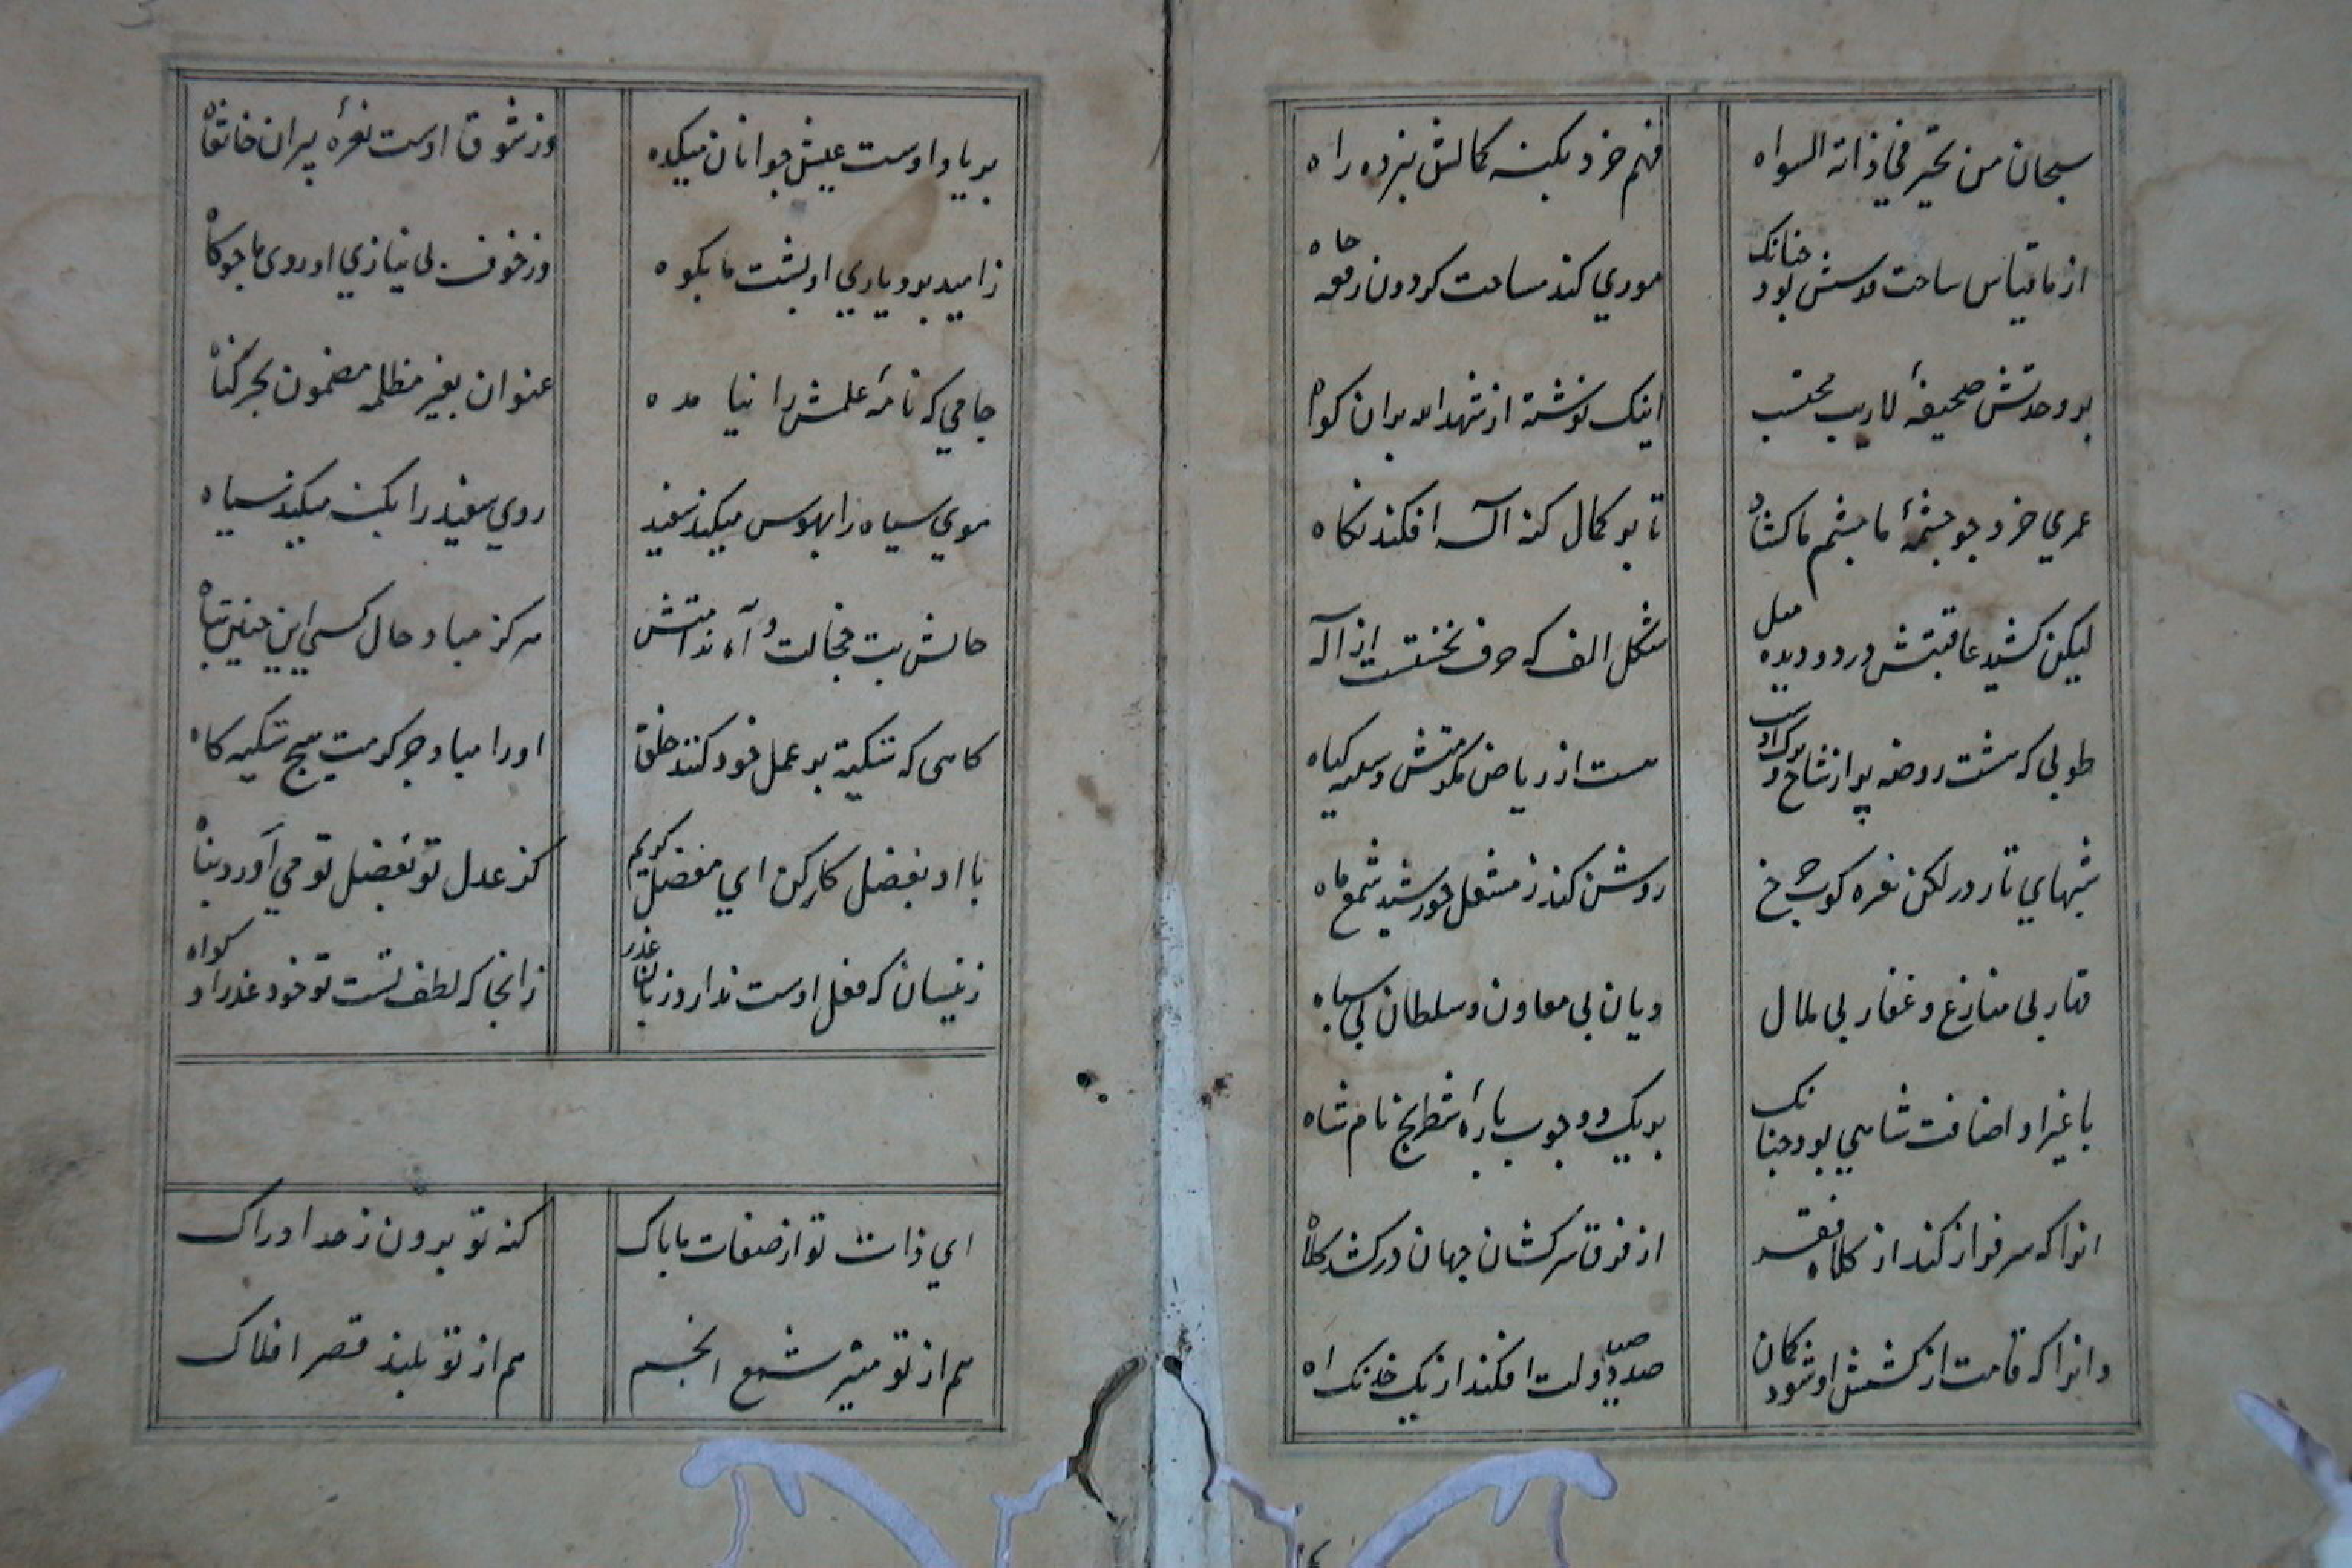 سبحان من تحیر فی ذاته السواه
فهم خرد بکنه کمالش نبرده راه
از ما قیاس ساحت قدسش بود چنانک
موری کند مساحت کردون ز قعر چاه
بر وحدتش صحیفهٔ لاریب محتسب
اینک نوشته از شهد الله بران کواه
عمری خرد چو چشمهٔ ما چشم ما کشاد
تا بر کمال کنه اله افکند نکاه
لیکن کشید عاقبتش در دو دیده میل
شکل الف که حرف نخستست از اله
طوبی که هشت روضه پر از شاخ و برک اوست
هست از ریاض مکرمتش و سیه کیاه
شبهای تار در لکن نقره کوب چرخ
روشن کند ز مشعل خورشید شمع ماه
قهار بی منازع و غفار بی ملال
دیان بی معاون و سلطان بی سپاه
با غیر او اضافت شاهی بود چنانک
بر یک دو چوب پارهٔ شطرنج نام شاه
انرا که سرفراز کند از کلاه فقر
از فرق سرکشان جهان در کشد کلاه
وانرا که قامت از کشش او شود کمان
صد صید دولت افکند از یک خدنک اه
بر یاد اوست عیش جوانان میکده
وز شوق اوست نعرهٔ پیران خانقاه
ز امید بود یاری او پشت ما بکوه
وز خوف بی نیازی او روی ما چو کاه
جامی که نامهٔ علمش را نیامده
عنوان بغیر مظلمه مضمون بجز کناه
موی سیاه را بهوس میکند سفید
روی سفید را بکنه میکند سیاه
حالش بت خجالت و آه ندامتش
هرکز مباد حال کسی این چنین تباه
کاهی که تکیه بر عمل خود کنند خلق
اورا مباد جز کرمت هیچ تکیه کاه
با او بفضل کار کن ای مفضل کریم
کز عدل تو بفضل تو می آورد پناه
زینسان که فعل اوست ندارد زبان عذر
زانجا که لطف تست تو خود عذر او کواه
ای ذات تو از صفات ما پاک
کنه تو برون ز حد ادراک
هم از تو منیر شمع انجم
هم از تو بلند قصر افلاک